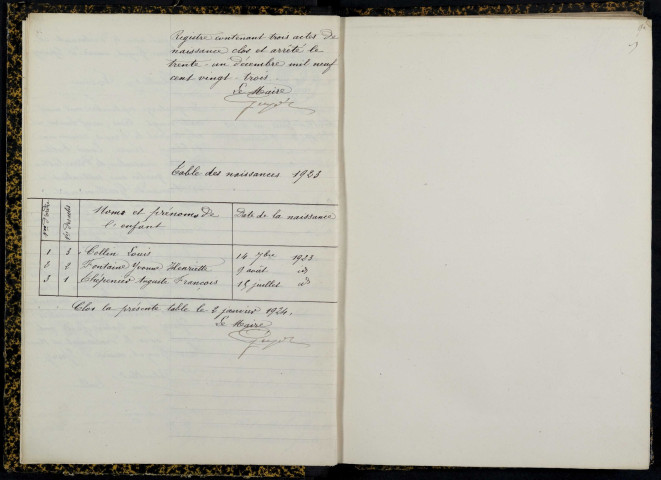 Registre contenant trois actes de
naissance clos et arrêté le
trente-un décembre mil neuf
cent vingt-trois.
Le Maire
Table des naissances 1923
Noms et prénoms de
l'enfant
Date de la naissance
1 3 Collin Louis 14 7bre 1923
2 2 Fontaine Yvonne Henriette 9 août id
3 1 Auguste François 15 juillet id
Clos la présente table le 2 janvier 1924.
Le Maire